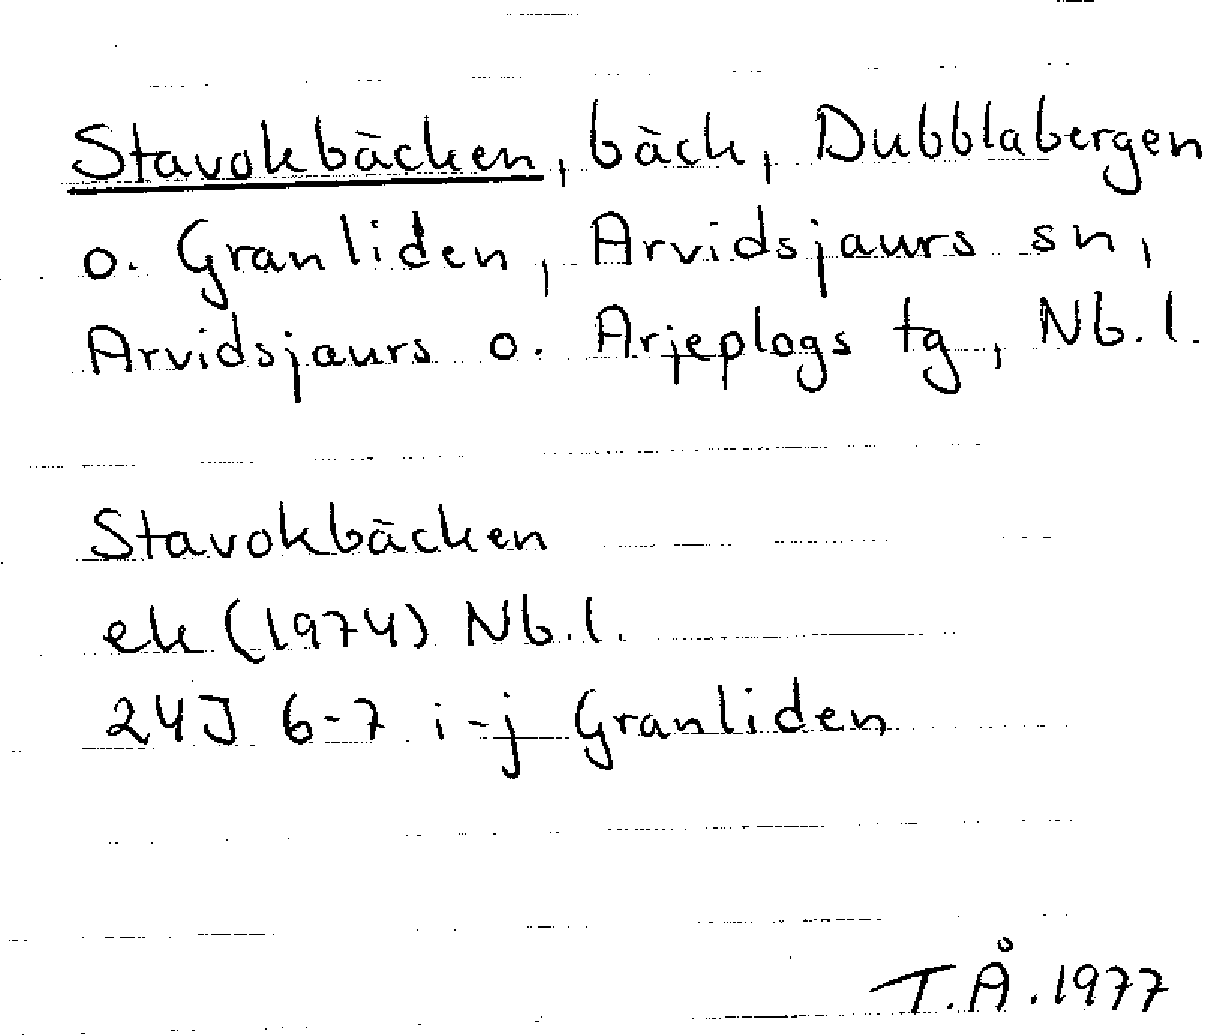 Stavokbäcken, bäck, Dubblabergen
o. Granliden, Arvidsjaurs sn,
Arvidsjaurs o. Arjeplogs tg, Nb.l.
Stavokbäcken
ek (1974) Nb.l.
24J 6-7 i-j Granliden
T.Å.1977